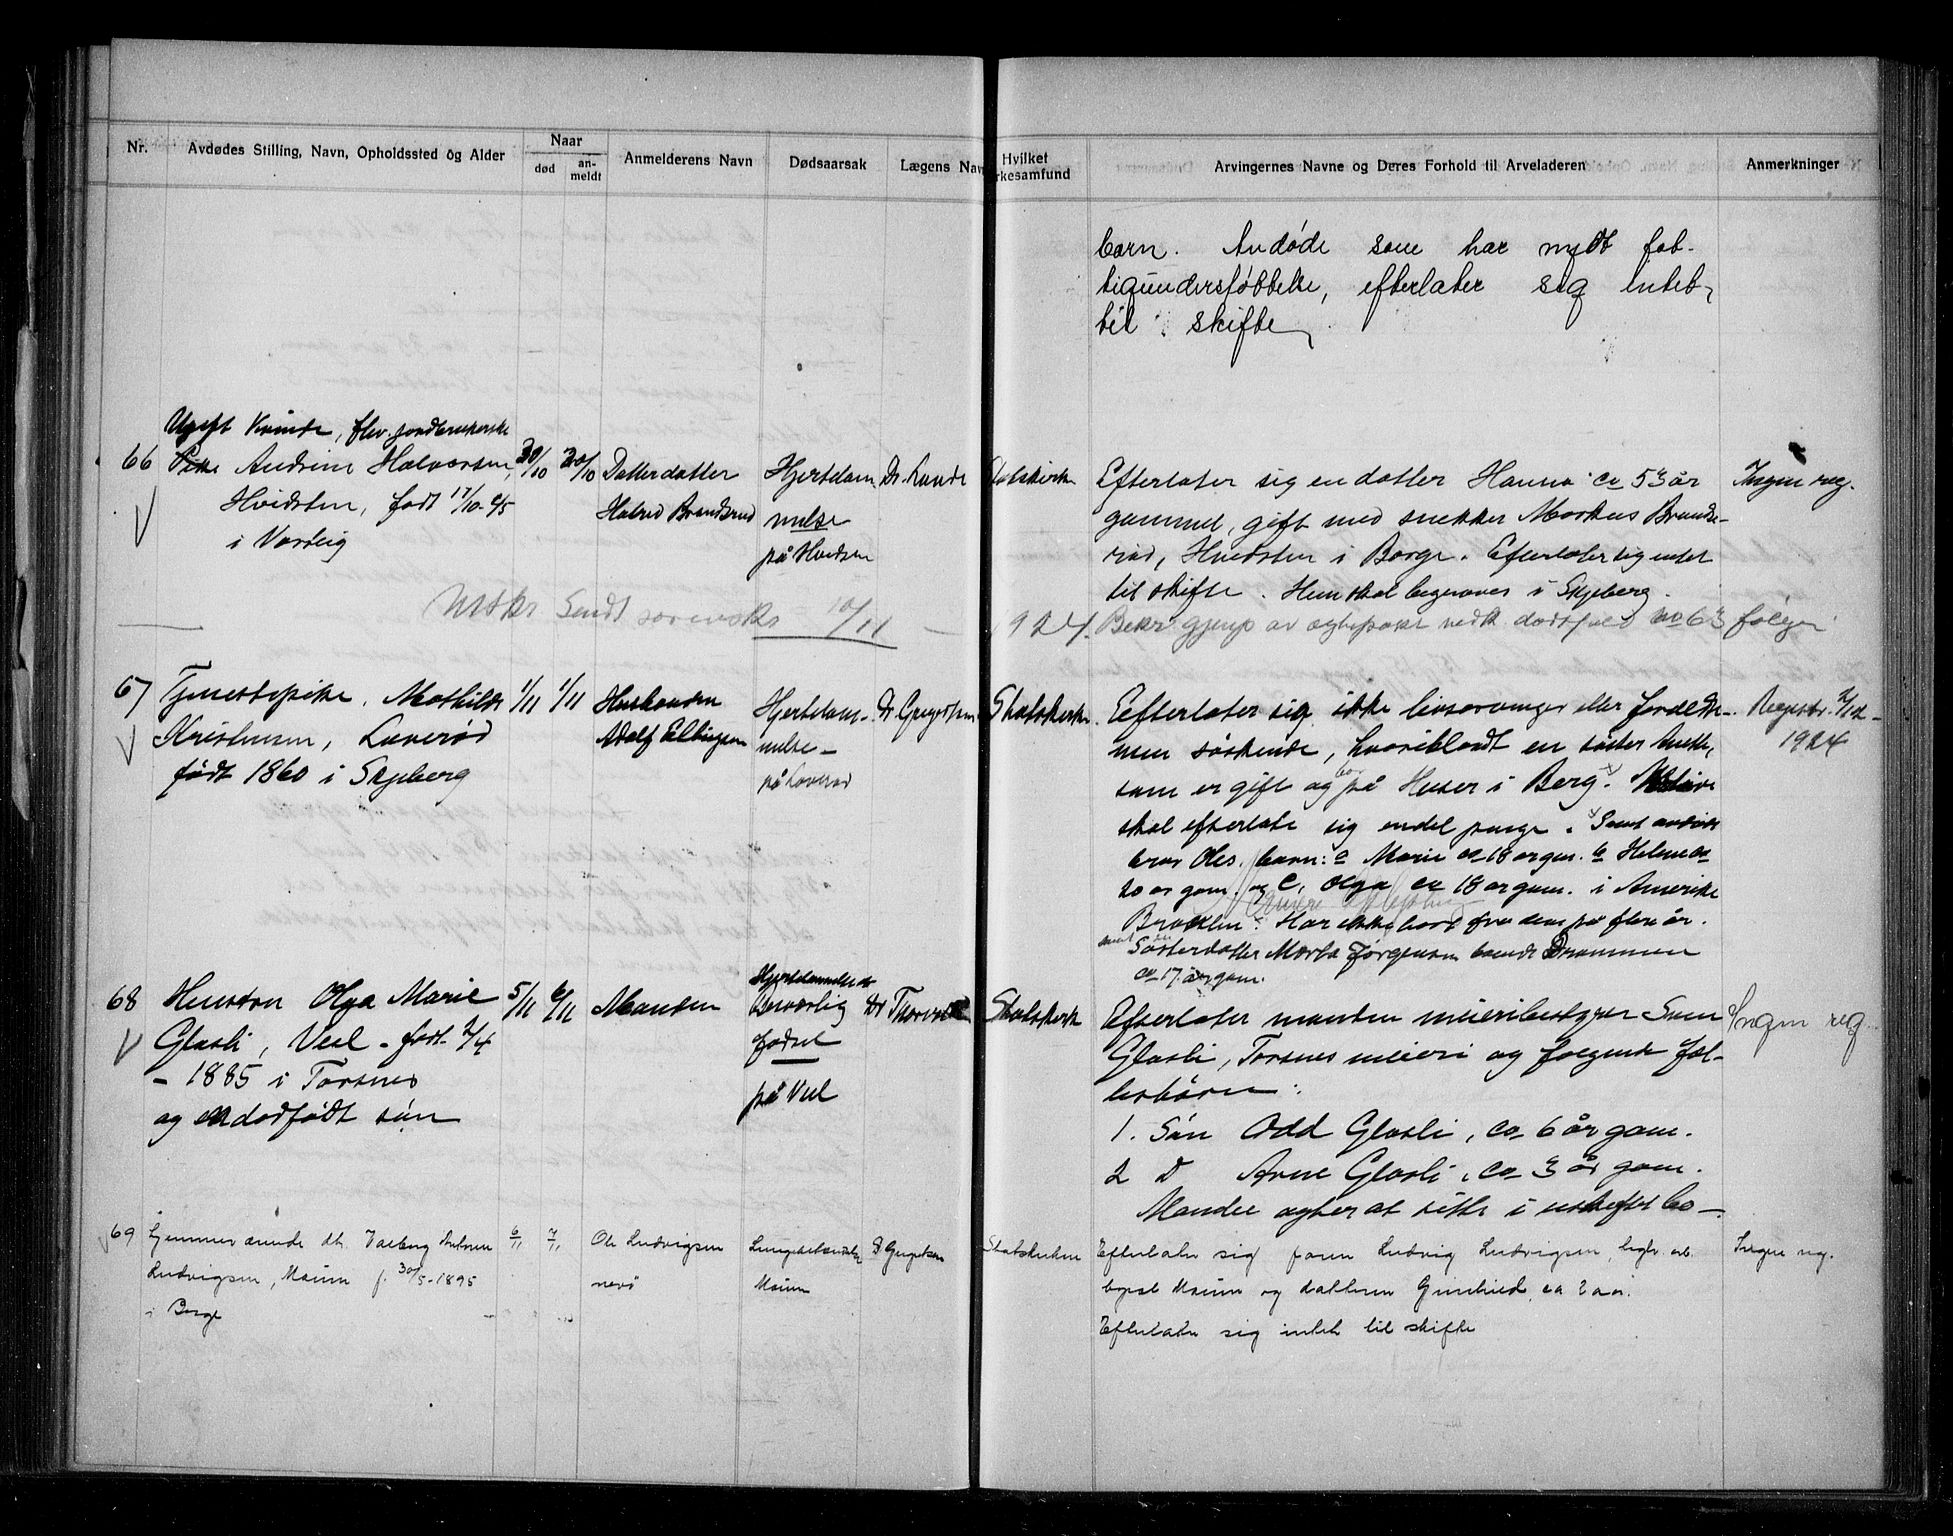 Nr.
Avdødes Stilling, Navn, Opholdssted og Alder
Naar
død
an-
meldt
Anmelderens Navn
Dødsaarsak
Lægens Nav
Hvilket
rkesamfund
Arvingernes Navne og Deres Forhold til Arveladeren
Anmerkninger
barn. Avdøde som har nydt fat-
tigunderstøbbelse, efterlater sig intet
til skifte
66
Ugift Kvinde, flev.
Pike Andrine Halvorsen,
Hvidsten, født 17/10-45
i Varteig
30/10
30/10
Datterdatter
Halvd Brandsrud
Hjertelam-
melse
på Hvidsten
Dr. Lunde
Statskirk
Efterlater sig en datter Hanna ca 53 år
gammel, gift med snekker Markus Brands-
rud, Hvidsten i Borge. Efterlater sig intet
til skifte. Hun skal begraves i Skjeberg.
Ingen reg.
Sendt sorenskr 10/11 — 1924.
dødsfald no 63 følger
67
Tjenestepike, Mathilde
Kristensen, Laverød
født 1860 i Skjeberg
1/11
1/11
Husbonden
Adolf Ellingsen
Hjertelam-
melse -
på Laverød
Dr Gregersen
Statskirke.
Eefterlater sig ikke livsarvinger eller foreldre
men søskende, hvoriblandt en søster
som er gift og bor på Huser i Berg.
skal efterlate sig endel penge. Samt avdøde
bror Oles barn: a Marie ca 18 årgm. b Helmer ca
20 år gam. og c, Olga ca 18 år gam. i Amerika
Brooklin. Har ikke hørt fra dem på flere år.
samt Søsterdatter Marta Jørgensen boende Drammen
ca 17 år gam.
Registr. 2/12 -
1924
68
Hustru Olga Marie
Glasli, Vesl - født 2/4
- 1885 i Torsnes
og en dødfødt søn
5/11
6/11
Manden
Hjertelammelse
fødsel
på Vesl
Dr
Statskirk
Efterlater manden meieribestyrer
Glasli, Torsnes meieri og følgende fæl-
lesbørn:
1. Søn Odd Glasli, ca 6 år gam.
2 D Arne Glasli, ca 3 år gam.
Manden agter at sitte i uskiftet bo -
Ingen reg.
69
Hjemmeværende dtr. Valborg
Ludvigsen, Moum f. 30/5-1895
i Borge
6/11
7/11
Ole Ludvigsen
nevø
Moum
D Gregersen
Statskirken
Efterlater sig faren Ludvig Ludvigsen,
bopæl Moum og datteren Gunhild ca 2 år.
Efterlater sig intet til skifte
Ingen reg.